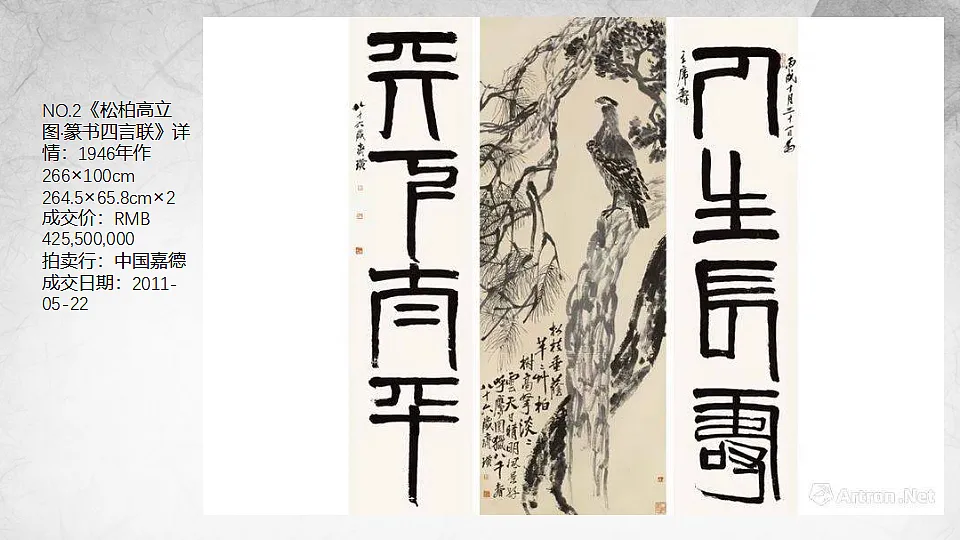 NO.2《松柏高立
图·篆书四言联》详
情：1946年作
266×100cm
264.5×65.8cm×2
成交价：RMB
425,500,000
拍卖行：中国嘉德
成交日期：2011-
05-22
丙戌十月三十一日為
人生長壽
主席壽
松枝垂蔭
芊〻艸柏
樹高擎淡〻
雲天日晴明風景好
呼鷹圖獵八千壽
八十六歲齊璜
天下太平
八十六歲齊璜
Artron.Net